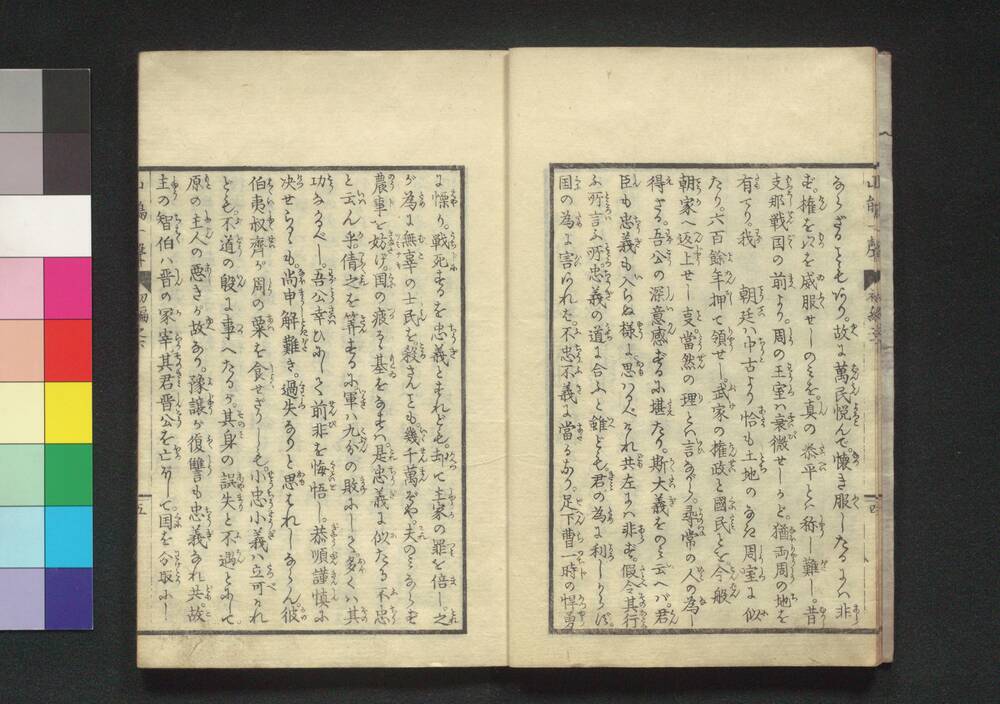 ならざるともいへり。故に萬民悦んで懐き服したるにハ非
ず。権を以を威服せしのミを。真の泰平とハ称し難し。昔
支那戦国の前より。周の王室ハ衰微せしかど。猶両周の地を
有てり我 朝廷ハ中古より恰も土地のなき周室に似
たり。六百餘年押て領せし。武家の権政と國民とを今般
朝家へ返上せし支當然の理とハ言ながら。尋常の人の為し
得ざる。吾公の深意感ずるに堪たり。斯大義をのミ云へバ。君
臣も忠義も入らぬ様に思ハるべけれ共左にハ非ず。假令其行
ふ所言ふ所忠義の道に合ふと雖ども。君の為に利しからず。
国の為に害られた不忠不義に當るなり。足下曹一時の悍勇
に慄り。戦死するを忠義とすれども。却て主家の罪を倍し。之
が為に無辜の士民を殺さんとも幾千萬ぞや。夫のミならず
農事を妨げ。国の疲るゝ基をなすハ。是忠義に似たる不忠
と云ん乎倩之を算するに。軍ハ九分の敗にして。多くハ其
功なかるべし。吾公幸ひにして前非を悔悟し。恭順謹慎に
决せらるゝも。尚申解難き。過失なりと思はれしならん。彼
伯夷叔齊が周の粟を食せざりしも。小忠小義ハ立可けれ
ども不道の殷に事へたるが。其身の誤失と不遇とにして。
原の主人の悪きが故なり。豫讓が復讐も忠義なれ共。故
主の智伯ハ晋の冢宰其君晋公を亡ぼして。国を分取にし
初編之下
五